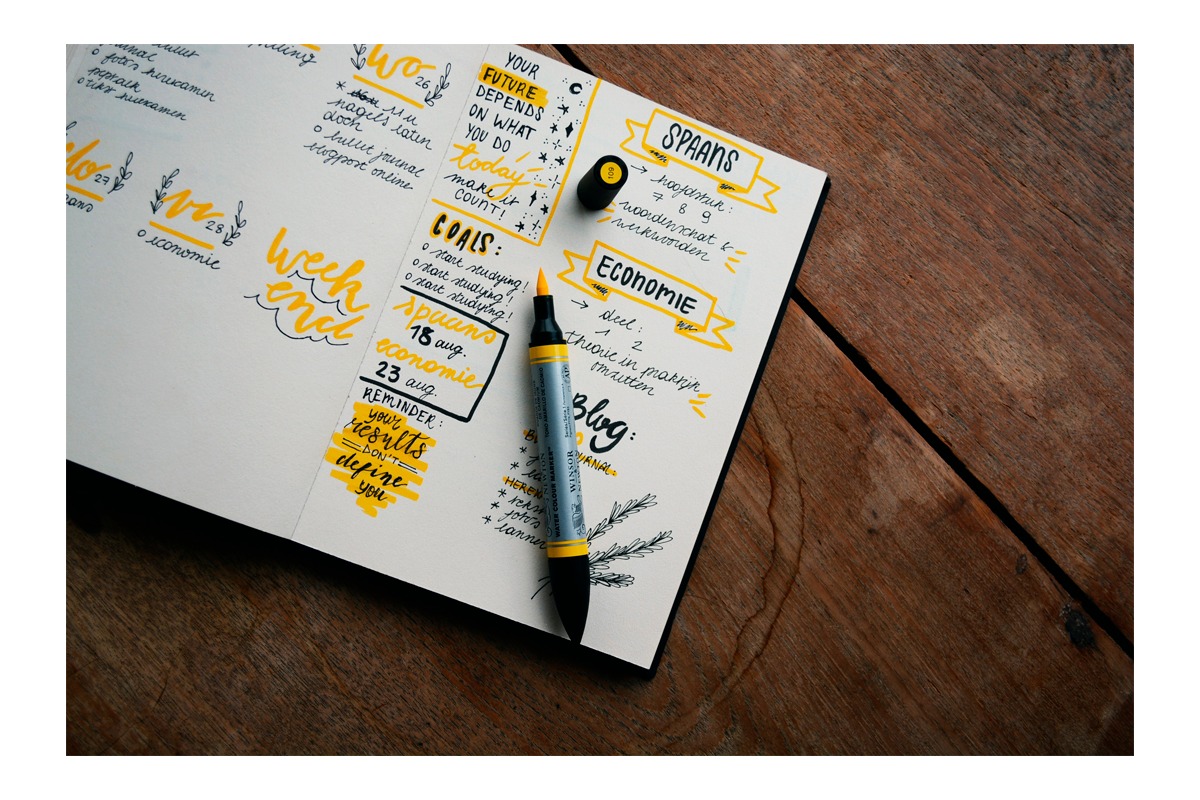 journal
foto's herexamen
* 11 u
nagels laten
doen
o bullet journal
blogpost online
wo 26
do 27
vr 28
o economie
Week
end
YOUR
FUTURE
DEPENDS
ON WHAT
YOU DO
today
make it
COUNT!
GOALS:
o start studying!
o start studying!
o start studying!
Spaans
18 aug.
economie
23 aug.
REMINDER:
your
results
DON'T
define
you
SPAANS
→ hoofdstuk:
7 8 9
woordenschat &
werkwoorden
ECONOMIE
→ deel:
1 2
theorie in praktijk
omzetten
Blog:
JOURNAL:
* foto's
* banner
109
WINSOR
NEWTON
WATER COLOUR MARKER